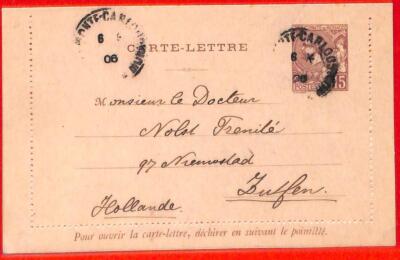 MONTE-CARLO
6
06
CARTE-LETTRE
MONTE-CARLO
6
06
15
Monsieur le Docteur
Nolst Trenité
97 Nieuwstad
Zutfen
Hollande
Pour ouvrir la carte-lettre, déchirer en suivant le pointillé.